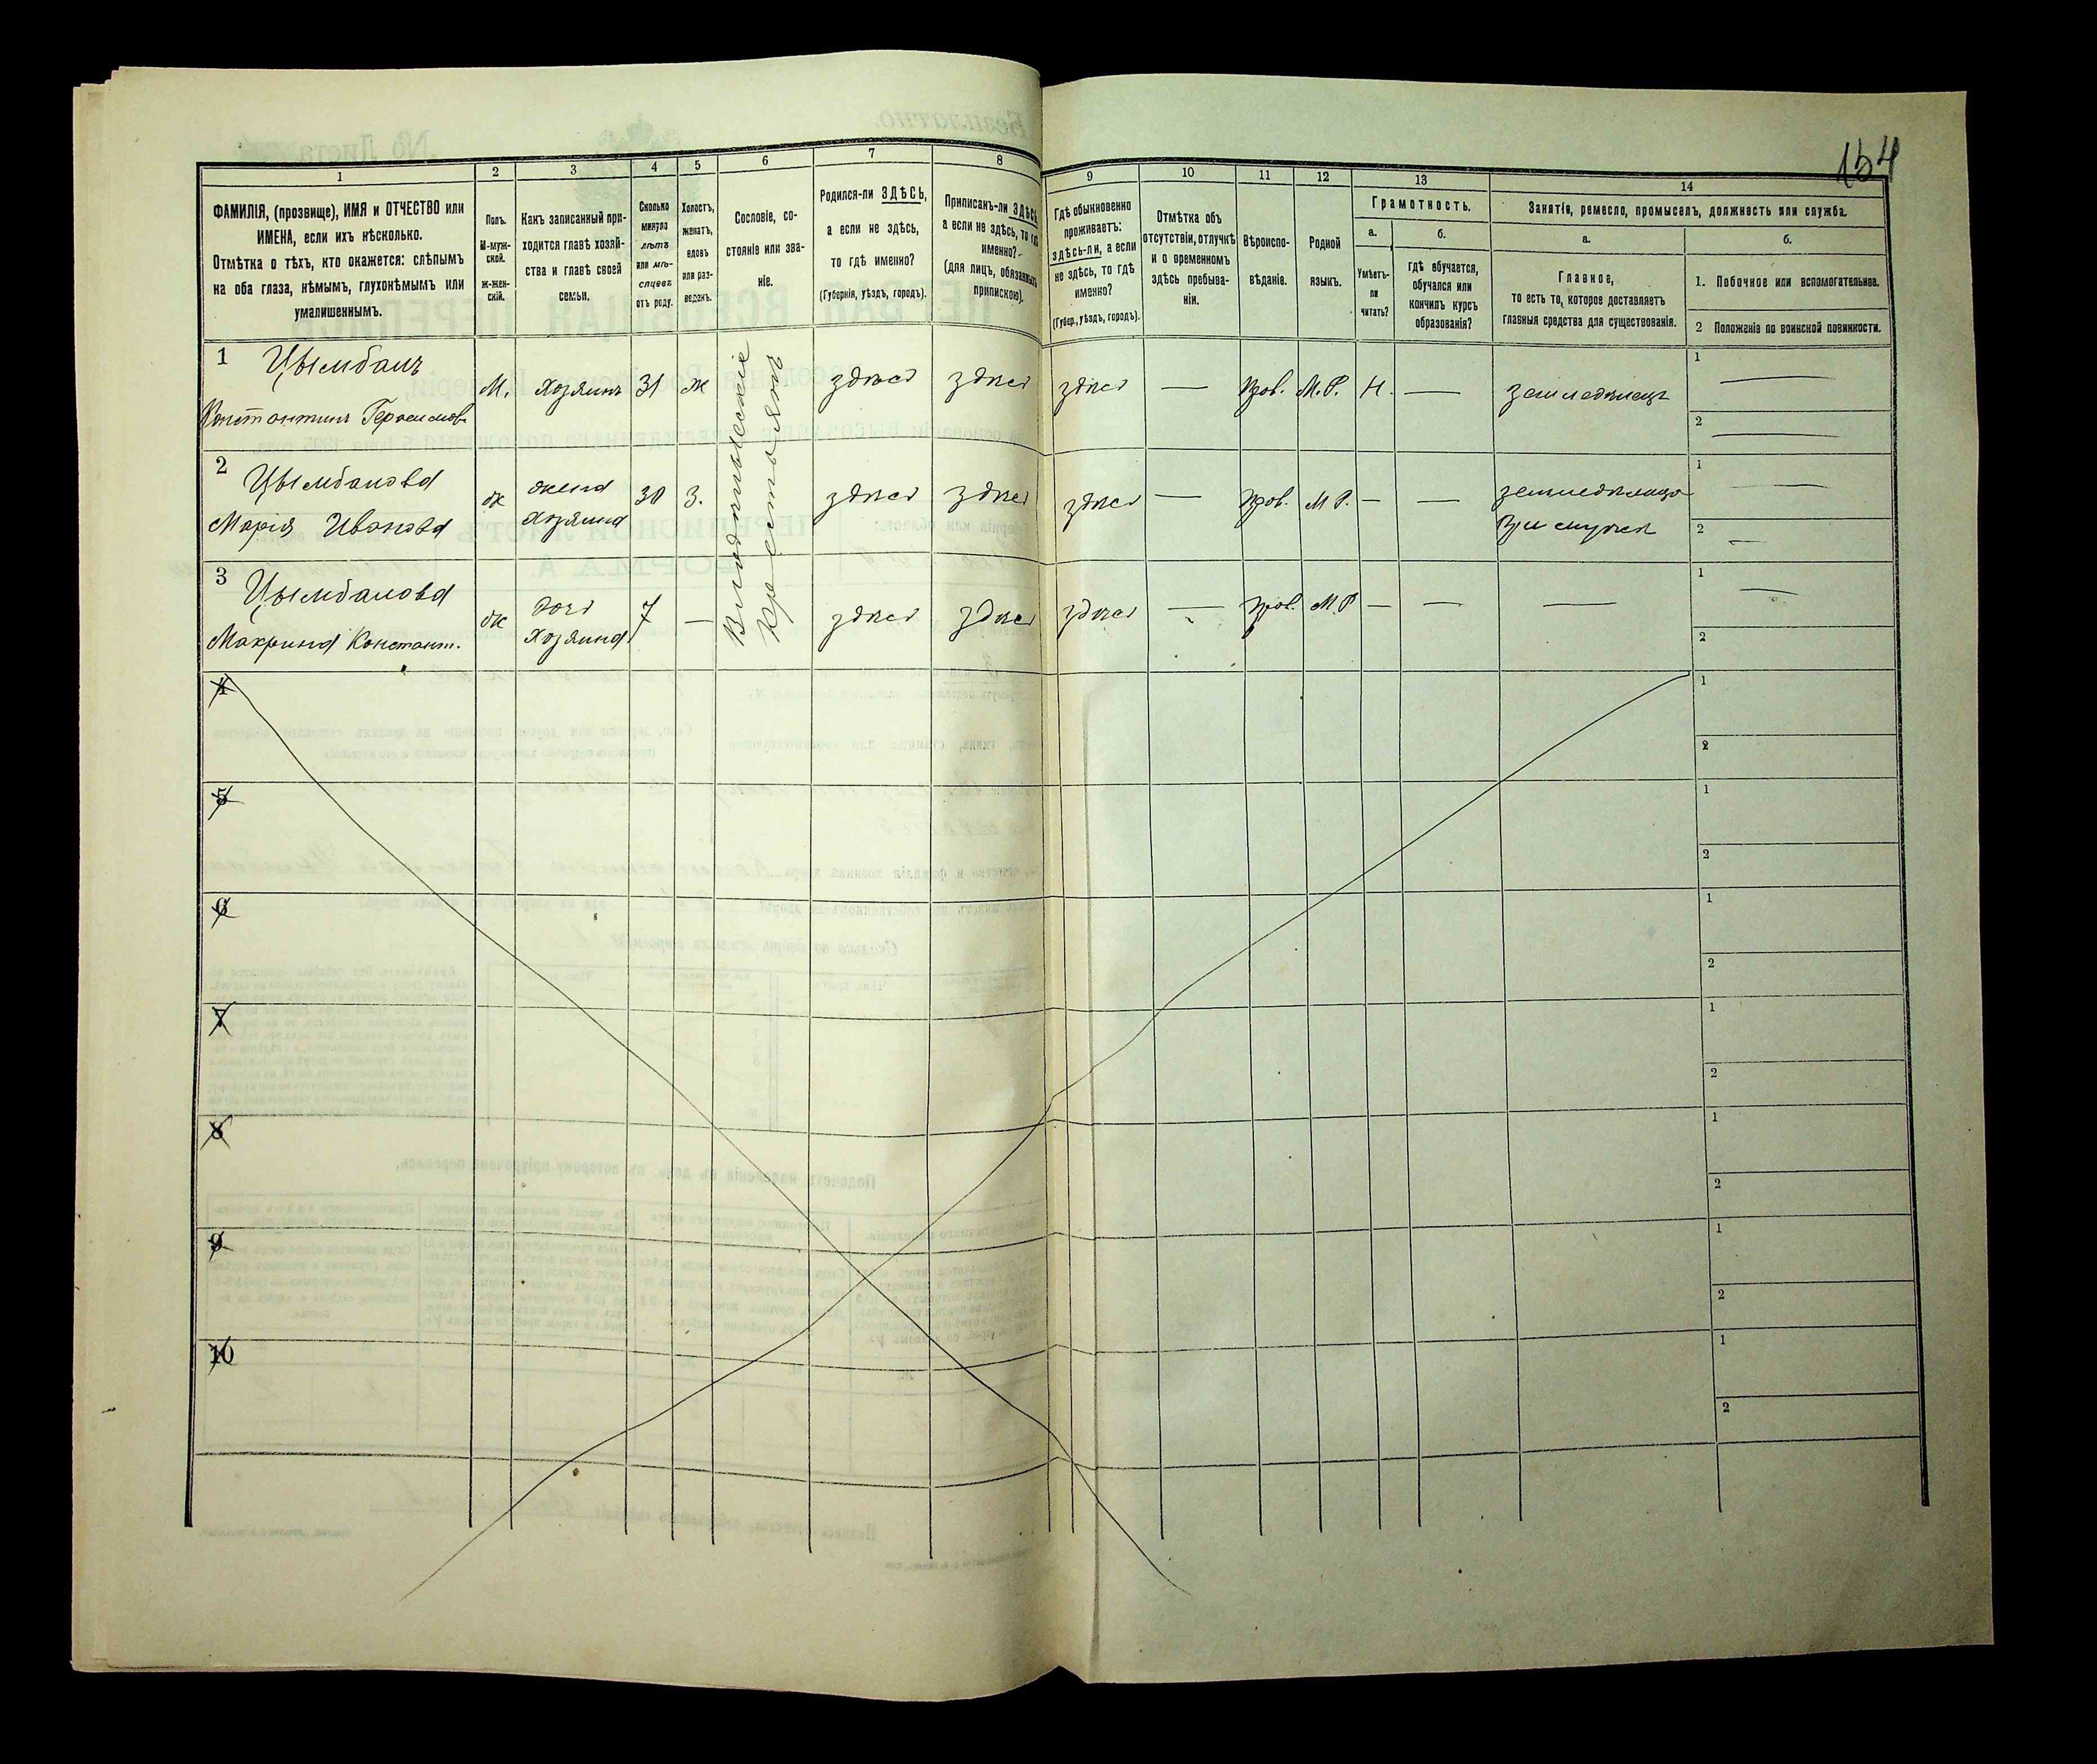 154
1
2
3
4
5
6
7
8
9
10
11
12
13
14
ФАМИЛІЯ, (прозвище), ИМЯ и ОТЧЕСТВО или
ИМЕНА, если ихъ нѣсколько.
Отмѣтка о тѣхъ, кто окажется: слѣпымъ
на оба глаза, нѣмымъ, глухонѣмымъ или
умалишеннымъ.
Полъ.
М-муж-
ской.
Ж-жен-
скій.
Какъ записанный при-
ходится главѣ хозяй-
ства и главѣ своей
семьи.
Сколько
минуло
лѣтъ
или мѣ-
сяцевъ
отъ роду.
Холостъ,
женатъ,
вдовъ
или раз-
веденъ.
Сословіе, со-
стояніе или зва-
ніе.
Родился-ли ЗДѢСЬ,
а если не здѣсь,
то гдѣ именно?
(Губернія, уѣздъ, городъ).
Приписанъ-ли ЗДѢСЬ
а если не здѣсь, то гдѣ
именно?
(для лицъ, обязанныхъ
припискою).
Гдѣ обыкновенно
проживаетъ:
здѣсь-ли, а если
не здѣсь, то гдѣ
именно?
(Губер., уѣздъ, городъ).
Отмѣтка объ
отсутствіи, отлучкѣ
и о временномъ
здѣсь пребыва-
ніи.
Вѣроиспо-
вѣданіе.
Родной
языкъ.
Грамотность.
а.
Умѣетъ-
ли
читать?
б.
гдѣ обучается,
обучался или
кончилъ курсъ
образованія?
Занятіе, ремесло, промыселъ, должность или служба.
а.
Главное,
то есть то, которое доставляетъ
главныя средства для существованія.
б.
1. Побочное или вспомогательное.
2 Положеніе по воинской повинности.
1 Цымбалъ
Константинъ Герасимов.
М. хозяинъ 31 ж
здѣсь здѣсь здѣсь — Прав. М.Р. Н. — земледѣлецъ
1 —
2 —
2 Цымбалова
Марія Иванова
ж жена
хозяина
30 З. здѣсь здѣсь здѣсь — Прав. М Р. — — земледѣлица
При мужѣ
1 —
2 —
3 Цымбалова
Макрина Констант.
ж дочь
хозяина
7 — здѣсь здѣсь здѣсь — Прав. М.Р — — —
1 —
2
крестьянъ
4
1
2
5
1
2
6
1
2
7
1
2
8
1
2
9
1
2
10
1
2